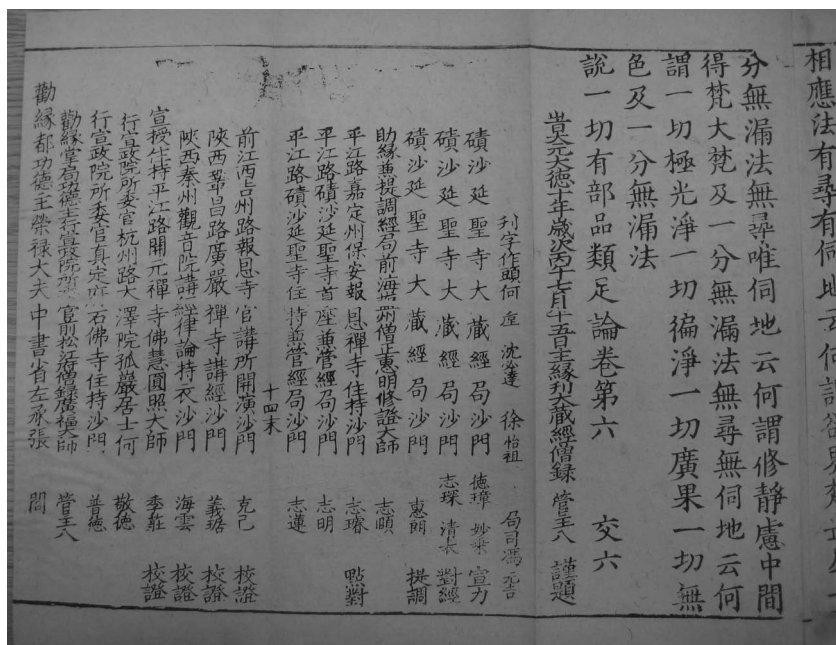 相應法有尋有伺地云何
分無漏法無尋唯伺地云何謂修靜慮中間
得梵大梵及一分無漏法無尋無伺地云何
謂一切極光淨一切徧淨一切廣果一切無
色及一分無漏法
說一切有部品類足論卷第六 交六
大元大德十年歲次丙午七月十五日主緣刊大藏經僧錄 管主八 謹題
刊字作頭何 沈 徐怡祖 局司馮
磧沙延聖寺大藏經局沙門 德璋 宣力
磧沙延聖寺大藏經局沙門 志琛 清 對經
磧沙延聖寺大藏經局沙門 惠朗 提調
助緣兼提調經局前海 州僧正惠明修證大師 志頤
平江路嘉定州保安報恩禪寺住持沙門 志璿 點對
平江路磧沙延聖寺首座兼管經局沙門 志明
平江路磧沙延聖寺住持兼管經局沙門 志蓮
十四末
前江西吉州路報恩寺官講所開演沙門 克己 校證
陝西鞏昌路廣嚴禪寺講經沙門 義琚 校證
陝西秦州觀音院講經律論持衣沙門 海雲 校證
宣授住持平江路開元禪寺佛慧圓照大師 季莊 校證
行宣政院所委官杭州路大 澤院孤巖居士何 敬德
行宣政院所委官真定府石佛寺住持沙門 普德
勸緣掌局功德主行宣政院所委官前松江府僧錄廣福大師 管主八
勸緣都功德主榮祿大夫中書省左丞張 閭